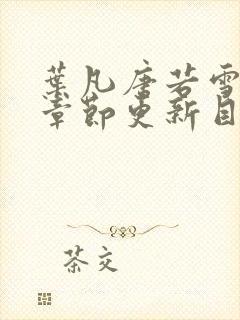 葉凡唐若雪
章節更新目
茶文